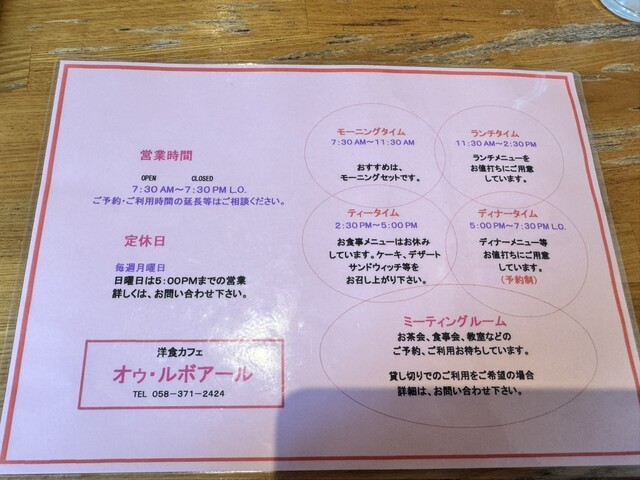 営業時間
OPEN CLOSED
7:30 AM～7:30 PM L.O.
ご予約・ご利用時間の延長等はご相談ください。
定休日
毎週月曜日
日曜日は5:00PMまでの営業
詳しくは、お問い合わせ下さい。
洋食カフェ
オゥ・ルボアール
TEL 058-371-2424
モーニングタイム
7:30 AM～11:30 AM
おすすめは、
モーニングセットです。
ランチタイム
11:30 AM～2:30 PM
ランチメニューを
お値打ちにご用意
しています。
ティータイム
2:30 PM～5:00 PM
お食事メニューはお休み
しています。ケーキ、デザート
サンドウィッチ等を
お召し上がり下さい。
ディナータイム
5:00 PM～7:30 PM L.O.
ディナーメニュー等
お値打ちにご用意
しています。
(予約制)
ミーティングルーム
お茶会、食事会、教室などの
ご予約、ご利用お待ちしています。
貸し切りでのご利用をご希望の場合
詳細は、お問い合わせ下さい。